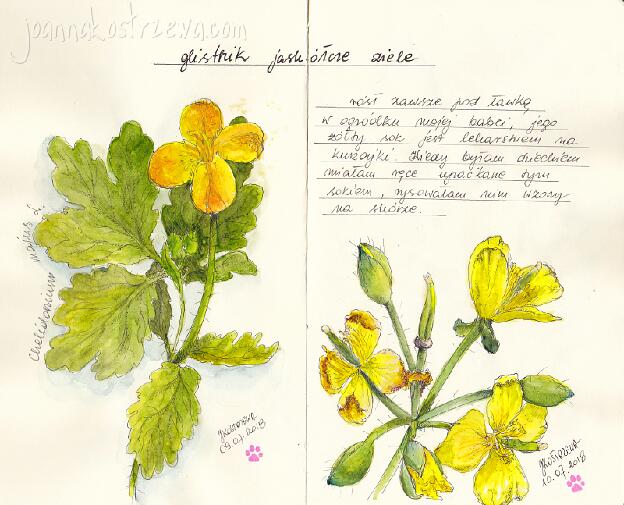 joannakostrzewa.com
glistnik jaskółcze ziele
rósł zawsze pod ławką
w ogródku mojej babci, jego
żółty sok jest lekarstwem na
kurzajki. Kiedy byłam dzieckiem
miałam ręce upaćkane tym
sokiem, rysowałam nim wzory
na skórze.
Chelidonium majus L.
09.07.2018
10.07.2018